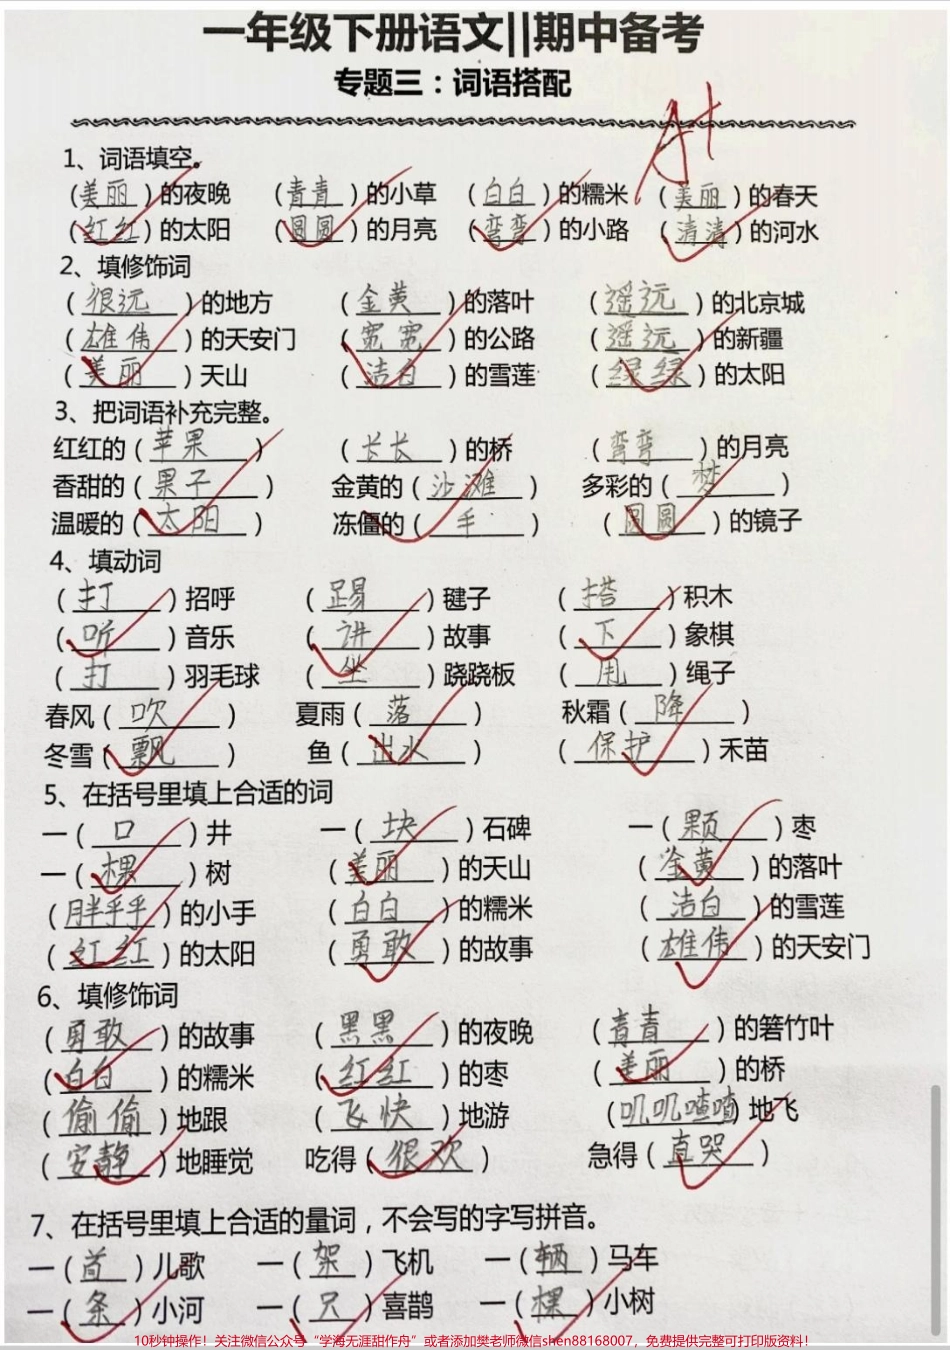 一年级下册语文||期中备考
专题三：词语搭配
A+
1、词语填空。
（美丽）的夜晚 （青青）的小草 （白白）的糯米 （美丽）的春天
（红红）的太阳 （圆圆）的月亮 （弯弯）的小路 （清清）的河水
2、填修饰词
（很远）的地方 （金黄）的落叶 （遥远）的北京城
（雄伟）的天安门 （宽宽）的公路 （遥远）的新疆
（美丽）天山 （洁白）的雪莲 （绿绿）的太阳
3、把词语补充完整。
红红的（苹果） （长长）的桥 （弯弯）的月亮
香甜的（果子） 金黄的（沙滩） 多彩的（梦）
温暖的（太阳） 冻僵的（手） （圆圆）的镜子
4、填动词
（打）招呼 （踢）毽子 （搭）积木
（听）音乐 （讲）故事 （下）象棋
（打）羽毛球 （坐）跷跷板 （甩）绳子
春风（吹） 夏雨（落） 秋霜（降）
冬雪（飘） 鱼（出水） （保护）禾苗
5、在括号里填上合适的词
一（口）井 一（块）石碑 一（颗）枣
一（棵）树 （美丽）的天山 （金黄）的落叶
（胖乎乎）的小手 （白白）的糯米 （洁白）的雪莲
（红红）的太阳 （勇敢）的故事 （雄伟）的天安门
6、填修饰词
（勇敢）的故事 （黑黑）的夜晚 （青青）的箬竹叶
（白白）的糯米 （红红）的枣 （美丽）的桥
（偷偷）地跟 （飞快）地游 （叽叽喳喳）地飞
（安静）地睡觉 吃得（很欢） 急得（直哭）
7、在括号里填上合适的量词，不会写的字写拼音。
一（首）儿歌 一（架）飞机 一（辆）马车
一（条）小河 一（只）喜鹊 一（棵）小树
10秒钟操作！关注微信公众号“学海无涯甜作舟”或者添加樊老师微信shen88168007，免费提供完整可打印版资料！